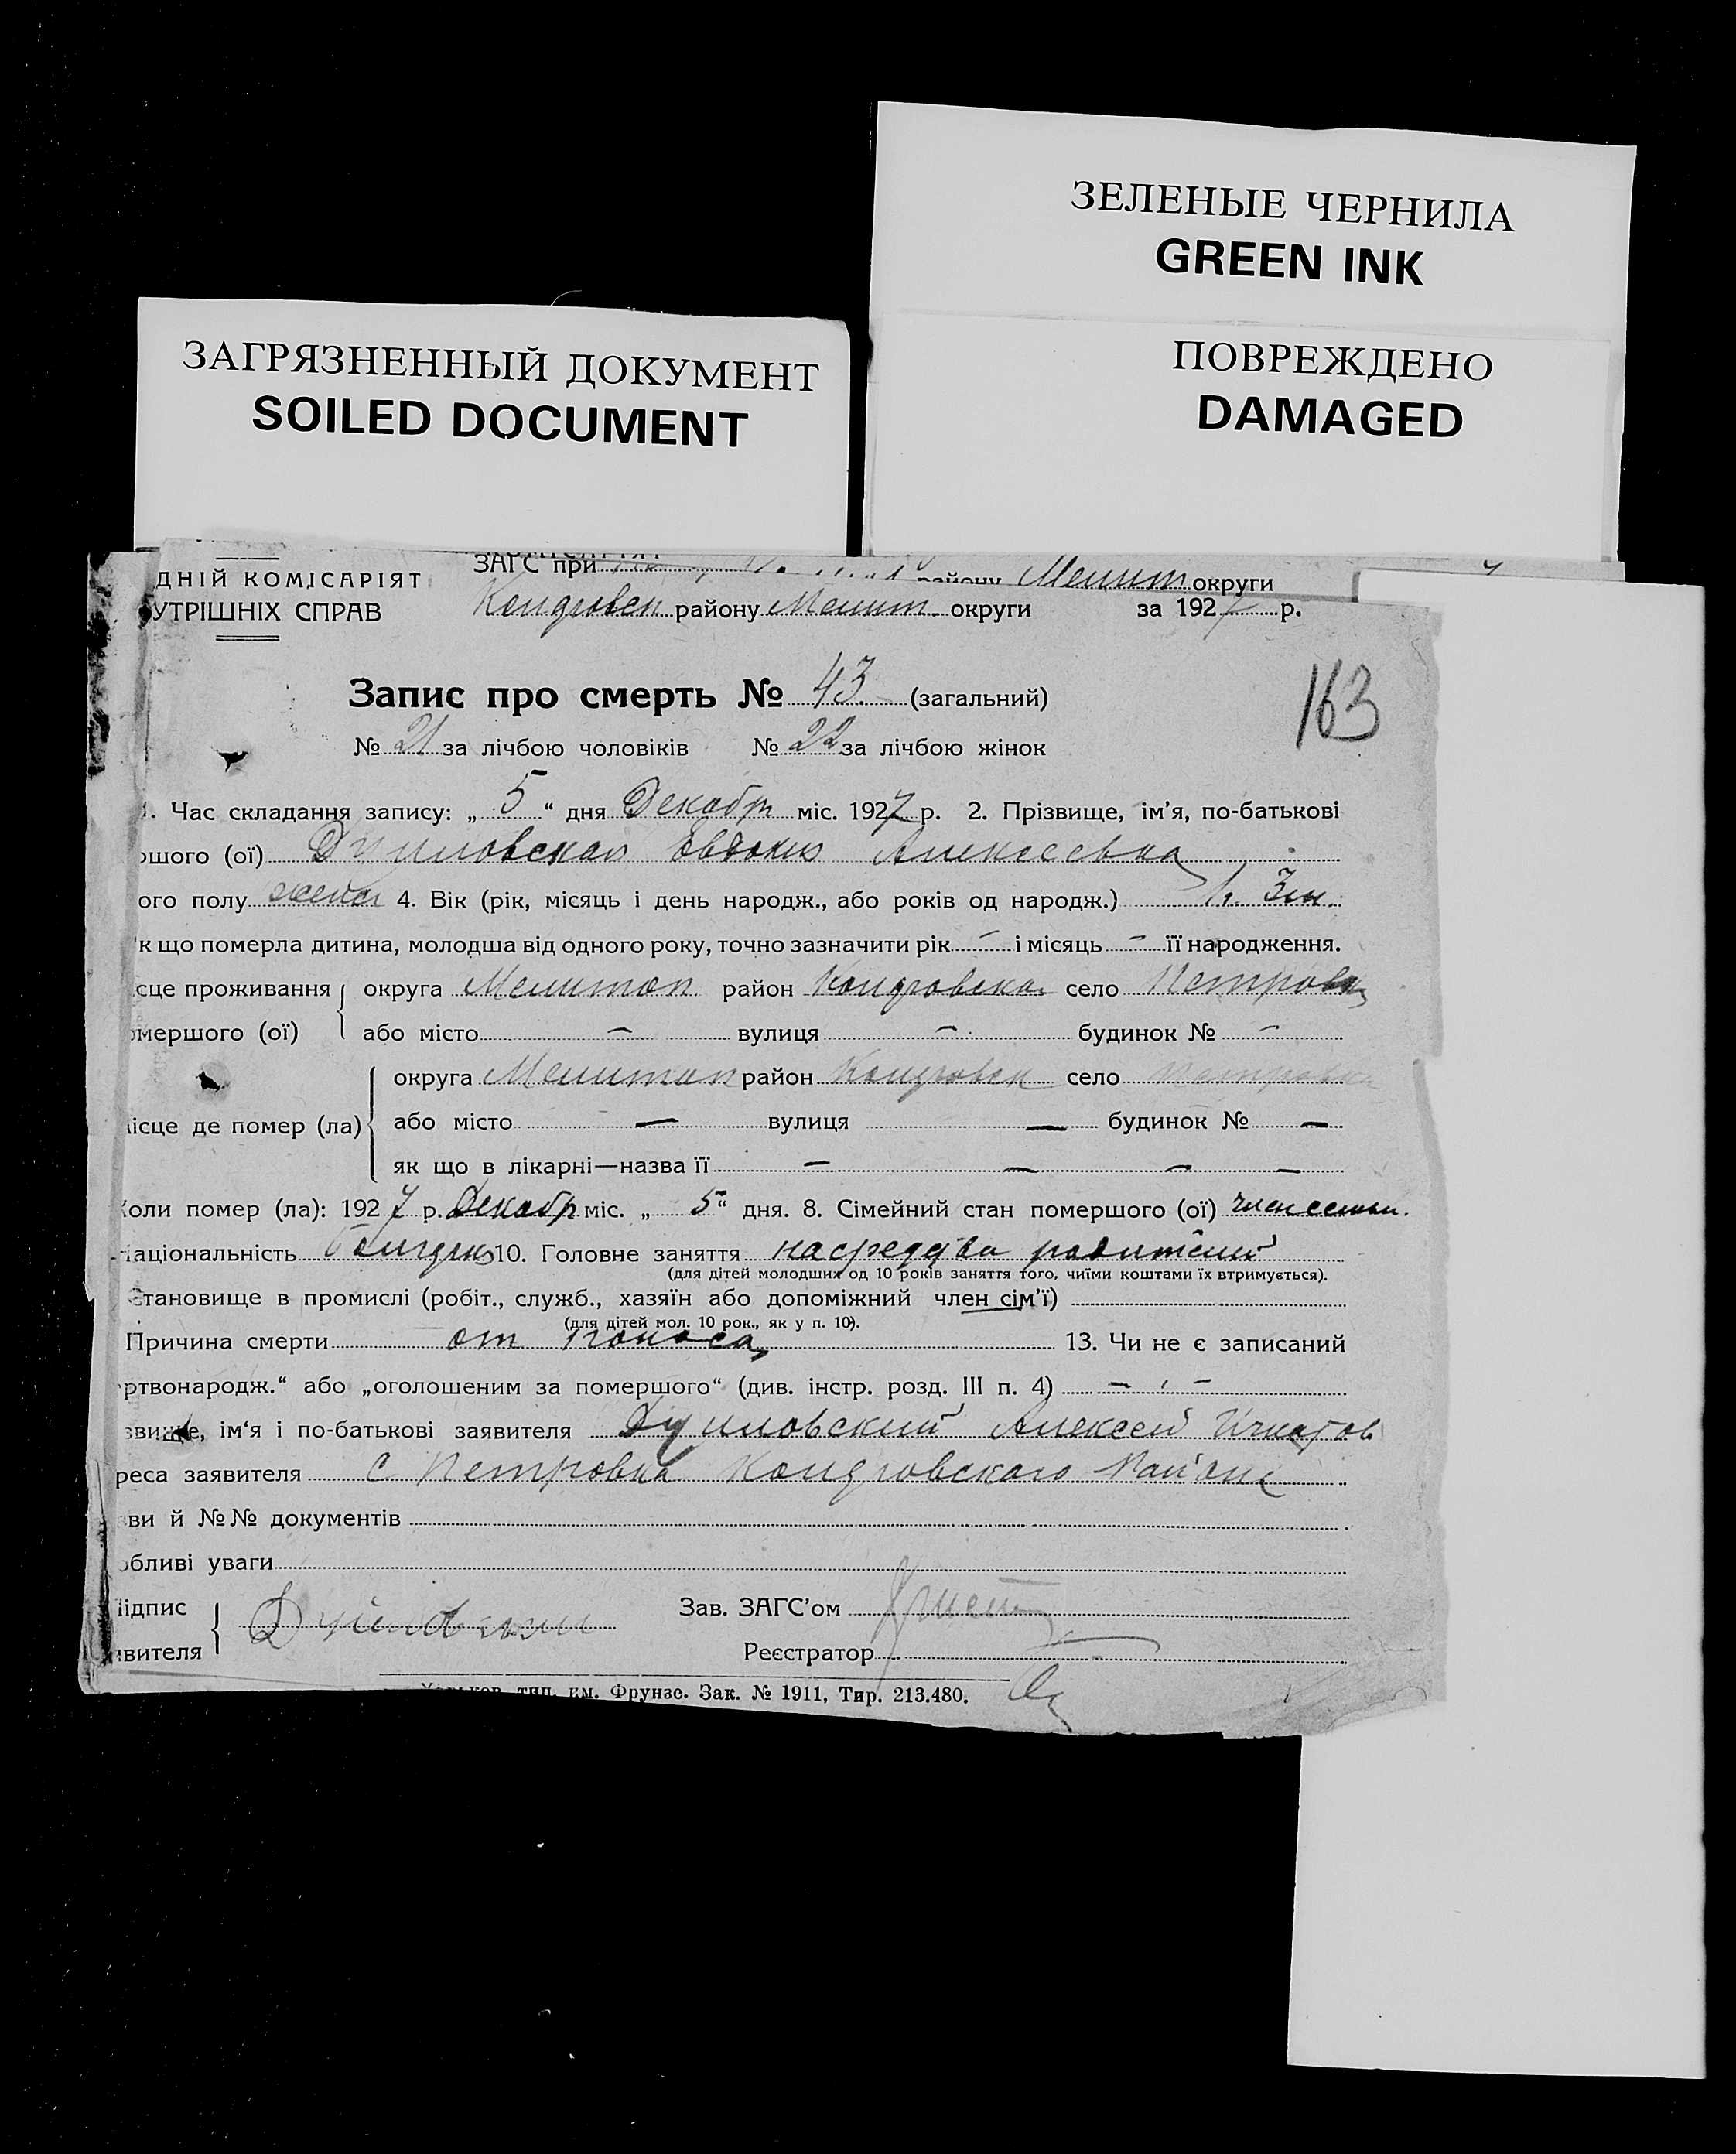 ЗЕЛЕНЫЕ ЧЕРНИЛА
GREEN INK
ПОВРЕЖДЕНО
DAMAGED
ЗАГРЯЗНЕННЫЙ ДОКУМЕНТ
SOILED DOCUMENT
ЗАГС при району Мелит. округи
ДНІЙ КОМІСАРІЯТ
УТРІШНІХ СПРАВ району Мелит. округи за 1927 р.
163
Запис про смерть № 43. (загальний)
№ 21 за лічбою чоловіків № 22 за лічбою жінок
1. Час складання запису: „ 5 “ дня Декабр міс. 1927 р. 2. Прізвище, ім’я, по-батькові
ршого (ої) Евдокия Алексеевна
ого полу женск 4. Вік (рік, місяць і день народж., або років од народж.)
к що померла дитина, молодша від одного року, точно зазначити рік – і місяць – її народження.
сце проживання округа Мелитоп район село Петровка
омершого (ої) або місто – вулиця – будинок № –
округа Мелитоп район село Петровка
ісце де помер (ла) або місто – вулиця – будинок № –
як що в лікарні—назва її – – – –
Коли помер (ла): 1927 р. Декабр міс. „ 5 “ дня. 8. Сімейний стан помершого (ої) член семьи.
Національність 10. Головне заняття на средства родителей
(для дітей молодших од 10 років заняття того, чиїми коштами їх втримується).
Становище в промислі (робіт., служб., хазяїн або допоміжний член сім’ї)
(для дітей мол. 10 рок., як у п. 10).
Причина смерти от поноса 13. Чи не є записаний
ртвонародж.“ або „оголошеним за помершого“ (див. інстр. розд. III п. 4) – –
звище, ім’я і по-батькові заявителя Алексей Игнатов
реса заявителя с Петровка Района
ви й №№ документів
обливі уваги
Підпис Зав. ЗАГС’ом
явителя Реєстратор
Харьков, тип. им. Фрунзе. Зак. № 1911, Тир. 213.480.